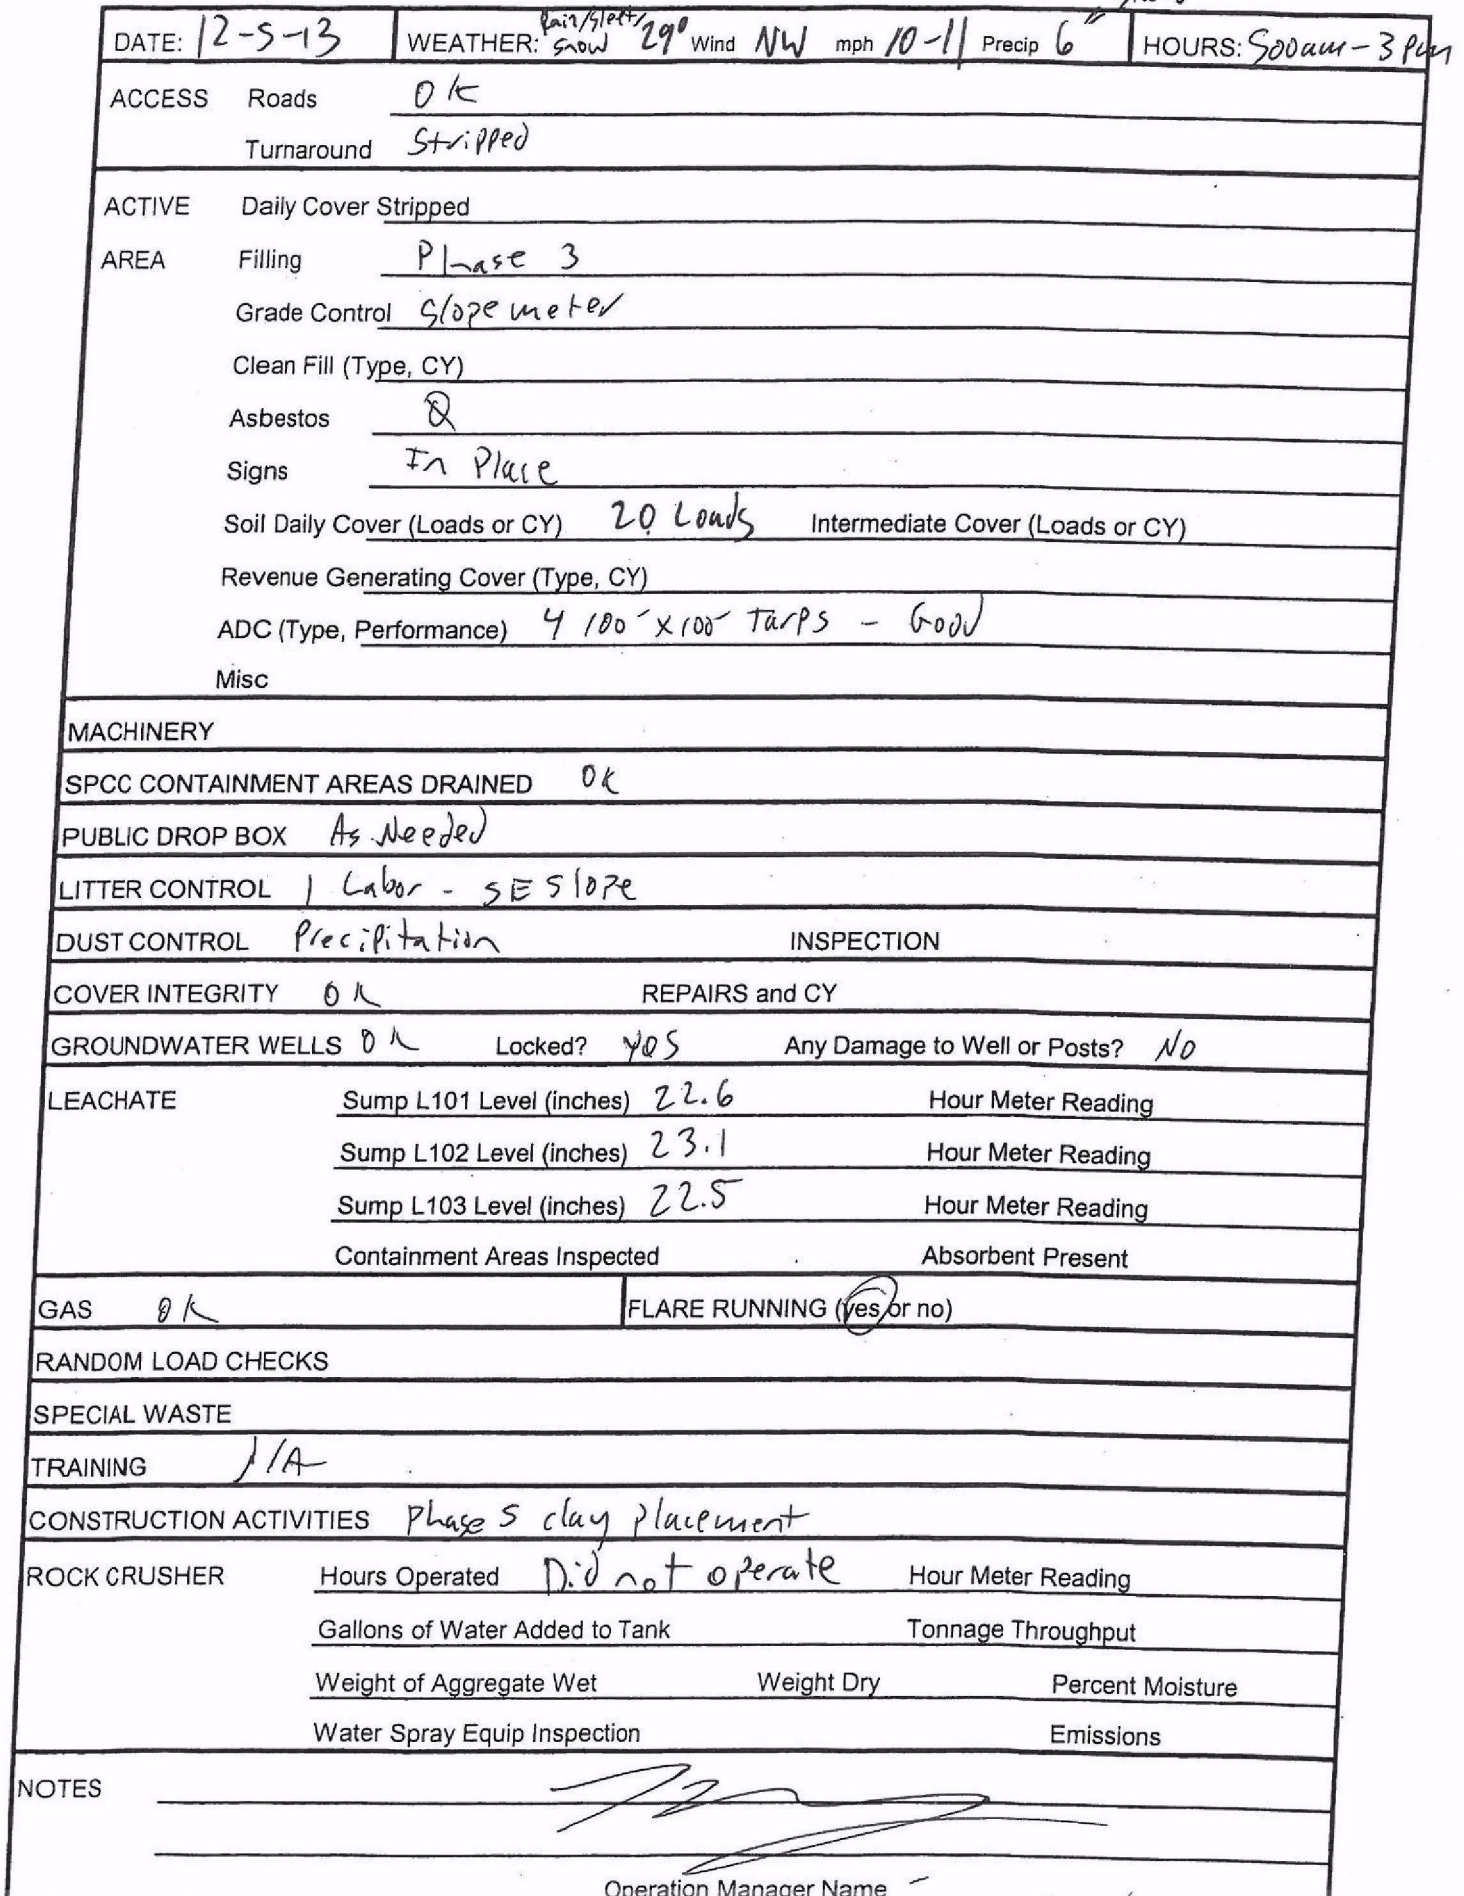 DATE: 12-5-13 WEATHER: Rain/Sleet/ Snow 29° Wind NW mph 10-11 Precip 6" HOURS: 500am - 3pm
ACCESS Roads OK
Turnaround Stripped
ACTIVE Daily Cover Stripped
AREA Filling Phase 3
Grade Control Slope meter
Clean Fill (Type, CY)
Asbestos
Signs In Place
Soil Daily Cover (Loads or CY) 20 Loads Intermediate Cover (Loads or CY)
Revenue Generating Cover (Type, CY)
ADC (Type, Performance) 4 100' x 100' Tarps - Good
Misc
MACHINERY
SPCC CONTAINMENT AREAS DRAINED OK
PUBLIC DROP BOX As Needed
LITTER CONTROL 1 Labor - SE Slope
DUST CONTROL Precipitation INSPECTION
COVER INTEGRITY OK REPAIRS and CY
GROUNDWATER WELLS OK Locked? yes Any Damage to Well or Posts? NO
LEACHATE Sump L101 Level (inches) 22.6 Hour Meter Reading
Sump L102 Level (inches) 23.1 Hour Meter Reading
Sump L103 Level (inches) 22.5 Hour Meter Reading
Containment Areas Inspected Absorbent Present
GAS OK FLARE RUNNING (yes or no)
RANDOM LOAD CHECKS
SPECIAL WASTE
TRAINING N/A
CONSTRUCTION ACTIVITIES Phase 5 clay placement
ROCK CRUSHER Hours Operated Did not operate Hour Meter Reading
Gallons of Water Added to Tank Tonnage Throughput
Weight of Aggregate Wet Weight Dry Percent Moisture
Water Spray Equip Inspection Emissions
NOTES
Operation Manager Name